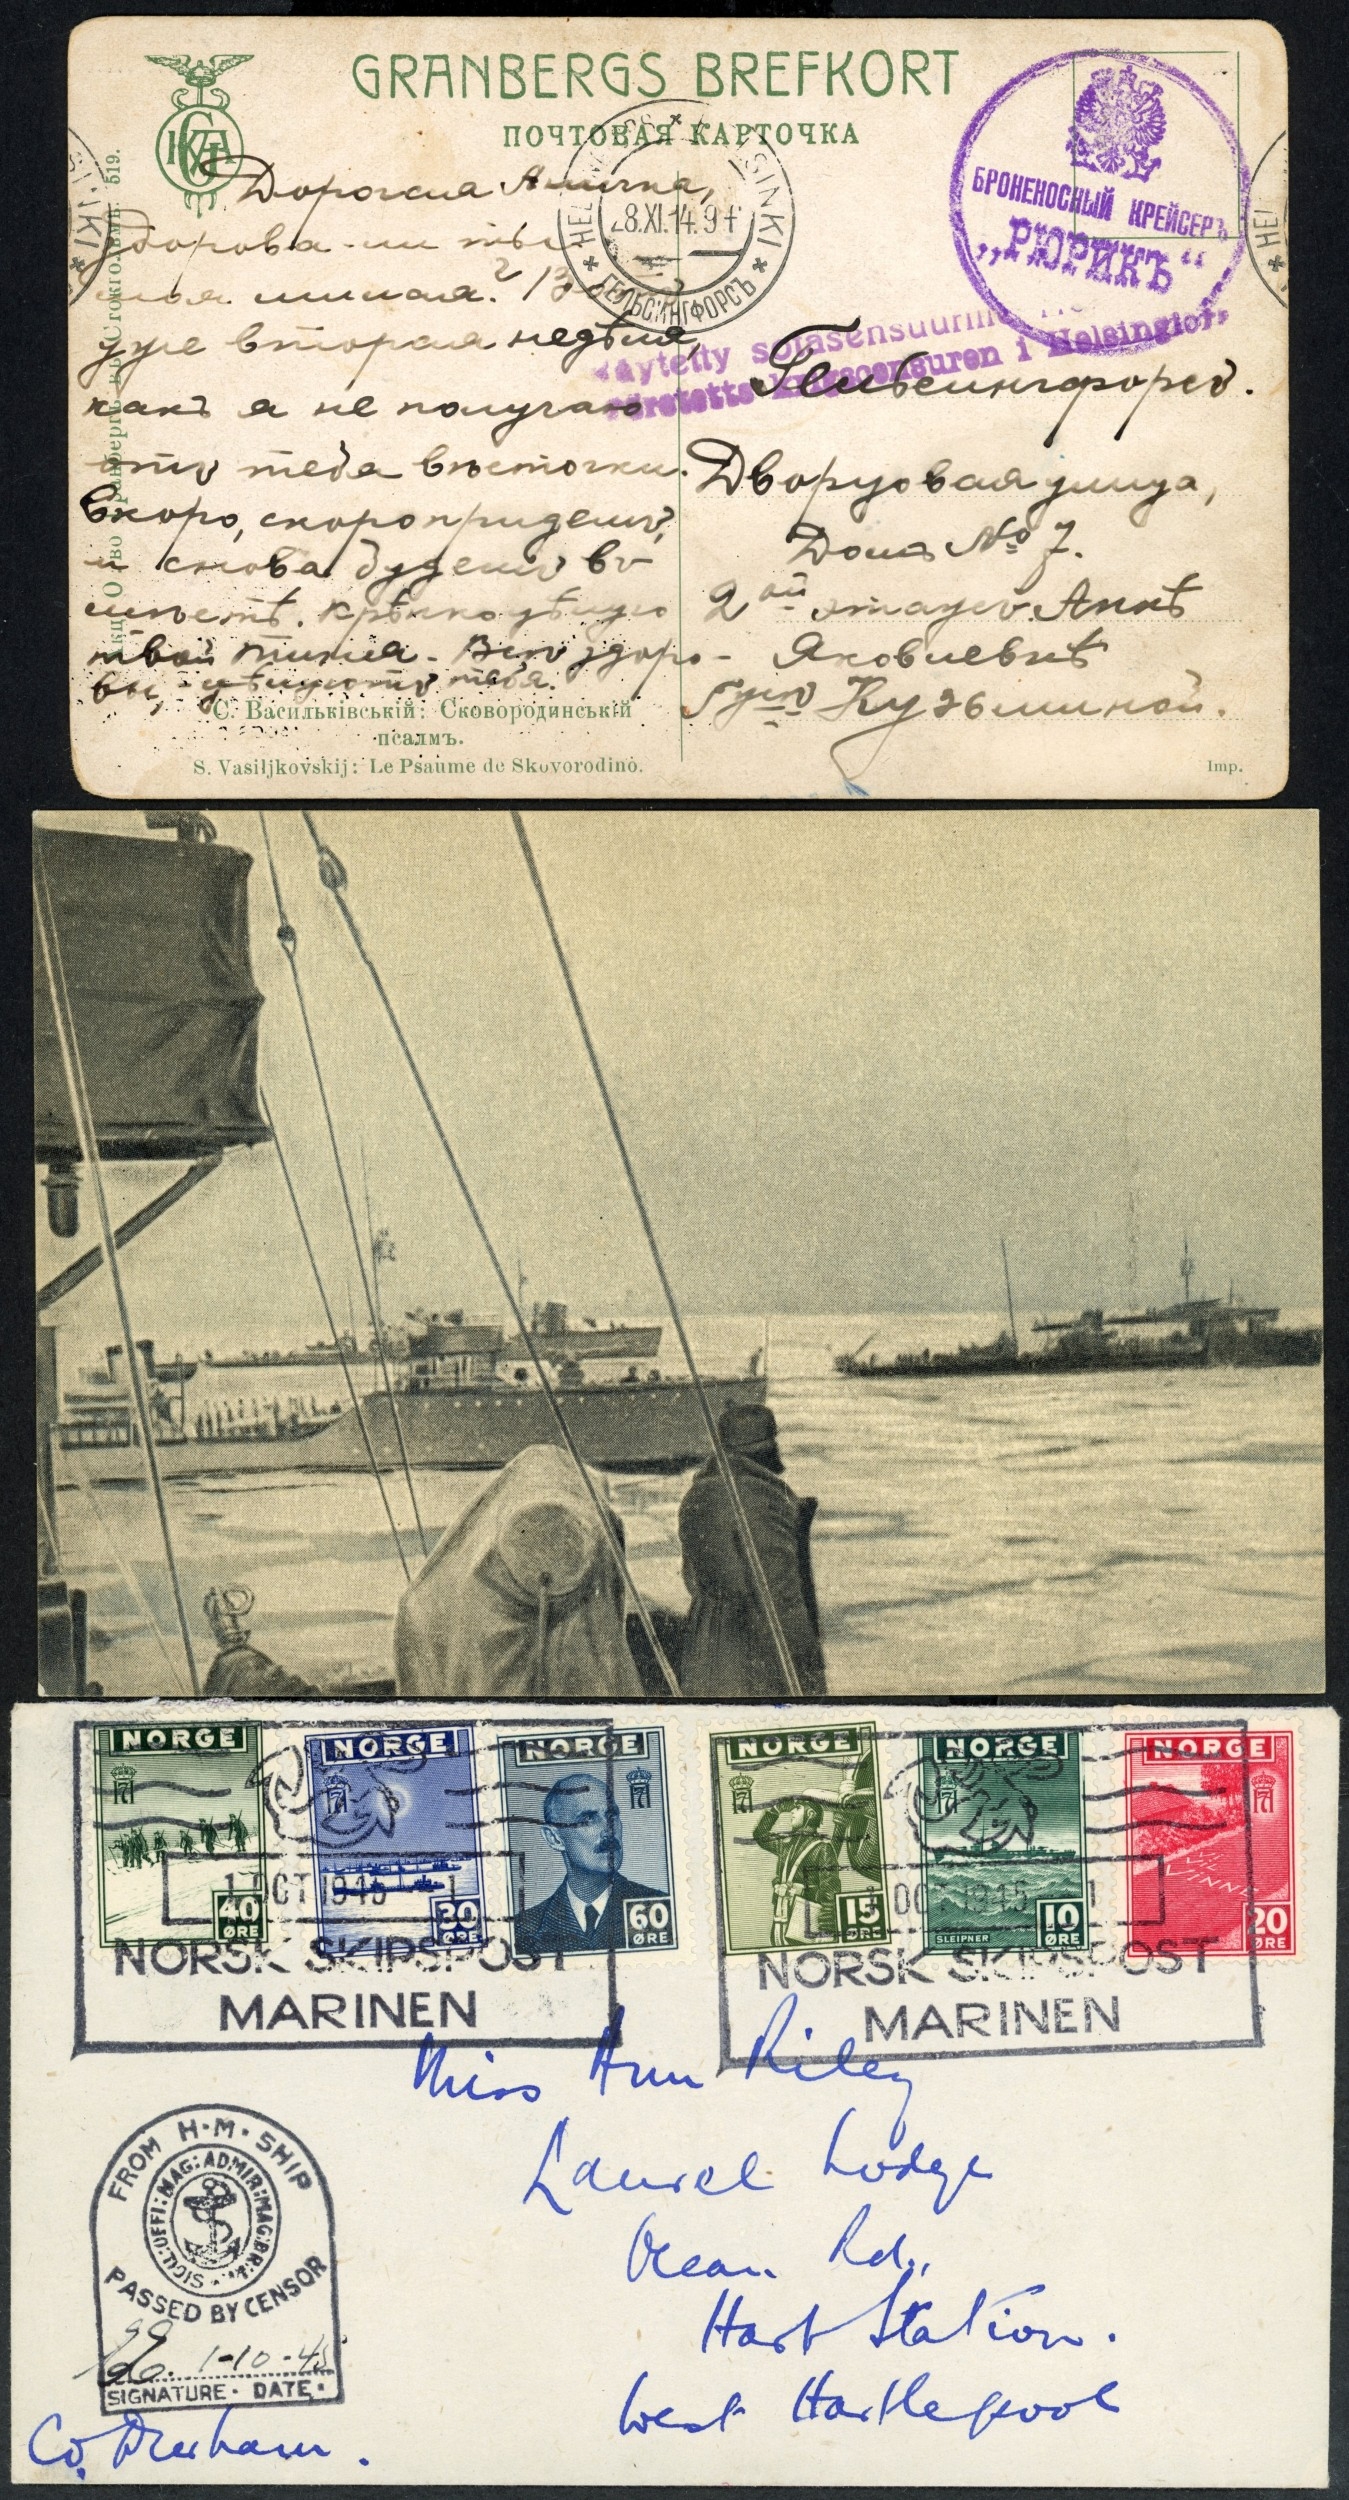 GRANBERGS BREFKORT
ПОЧТОВАЯ КАРТОЧКА
БРОНЕНОСНЫЙ КРЕЙСЕРЪ
„РЮРИКЪ“
HELSINKI
28.XI.14.9
ГЕЛЬСИНГФОРСЪ
519.
Дорогая Аничка,
здорова-ли ты
моя милая?
уже вторая недѣля,
какъ я не получаю
отъ тебя вѣсточки.
Скоро, скоро придемъ,
и снова будемъ въ
мѣстѣ. Крѣпко цѣлую
твой Все здоро-
вы, цѣлуютъ тебя.
Гельсингфорсъ.
Дворцовая улица,
Домъ № 7.
2ой этажъ. Аннѣ
Яковлевнѣ
Кузьминой.
С. Васильківській: Сковородинській
псалмъ.
S. Vasiljkovskij: Le Psaume de Skovorodino.
Imp.
NORGE 40 ØRE
NORGE 30 ØRE
NORGE 60 ØRE
NORGE 15 ØRE
NORGE SLEIPNER 10 ØRE
NORGE VI VIL VINNE 20 ØRE
1 OCT 1945 - 1
NORSK SKIPSPOST
MARINEN
1 OCT 1945 1
NORSK SKIPSPOST
MARINEN
Miss Ann Riley
Laurel Lodge
Ocean Rd.,
Hart Station.
West Hartlepool
Co. Durham.
FROM H·M·SHIP
SIGIL:OFFI:MAG:ADMIR:MAG:BR:
PASSED BY CENSOR
1-10-45
SIGNATURE· DATE·